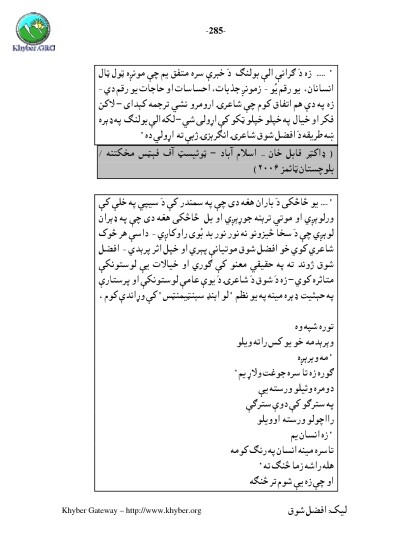 Khyber.ORG
-285-
" .... زه دَ ګرانې الې بولنګ دَ خبرې سره متفق يم چې مونږه ټول ټال
انسانان، يو رقم يُو - زمونږ جذبات، احساسات او حاجات يو رقم دي -
زه په دې هم اتفاق کوم چې شاعرۍ ارومرو نشي ترجمه کېداى – لاکن
فکر او خيال په خپلو خپلو ټکو کې اړولى شي – لکه الې بولنګ په ډېره
ښه طريقه دَ افضل شوق شاعرۍ انګرېزۍ ژبې ته اړولې ده "
( ډاکټر قابل خان – اسلام آباد – ټوئيسټ آف فېټس مخکتنه /
بلوچستان ټائمز ۲۰۰۶ )
"... يو څاڅکى دَ باران هغه دى چې په سمندر کې دَ سيپۍ په خلې کې
ورلوېږي او موتي ترېنه جوړېږي او بل څاڅکى هغه دى چې په ډېران
لوېږي چې دَ سخا څيزونو نه نور نور بد بُوى راوکاږي - داسې هر څوک
شاعري کوي خو افضل شوق موتيانې پېري او خپل اثر پرېدي - افضل
شوق ژوند ته په حقيقي معنو کې ګوري او خيالات يې لوستونکي
متاثره کوي – زه دَ شوق دَ شاعرۍ دَ يوې عامې لوستونکې او پرستارې
په حيثيت ډېره مينه په يو نظم "لو اينډ سينټيمنټس" کې وړاندې کوم .
توره شپه وه
وېرېدمه خو يو کس راته ويلو
" مه وېرېږه
ګوره زه تا سره جوغت ولاړ يم "
دومره وئيلو ورسته يې
په سترګو کې دوې سترګې
رااچولو ورسته اوويلو
" زه انسان يم
تاسره مينه انسان په رنګ کومه
هله راشه زما څنګ ته "
او چې زه يې شوم تر څنګه
Khyber Gateway – http://www.khyber.org
ليک: افضل شوق